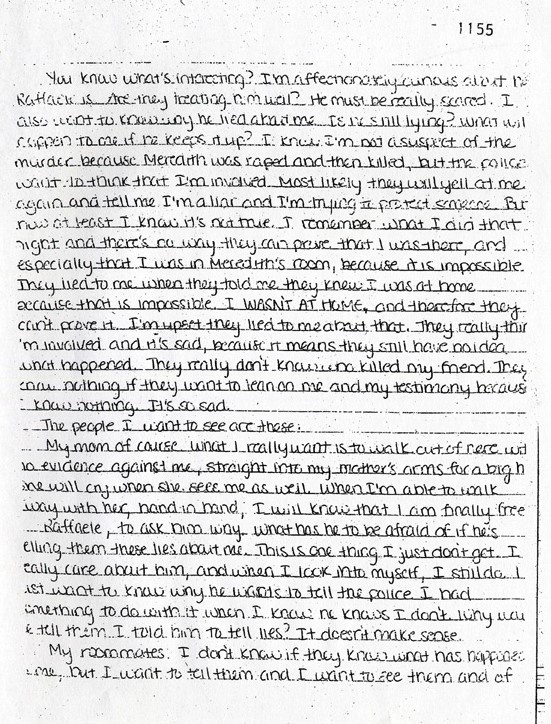 1155
You know what's interesting? I'm affectionately curious about h
Raffaele is. Are they treating him well? He must be really scared. I
also want to know why he lied about me. Is he still lying? What will
happen to me if he keeps it up? I know I'm not a suspect of the
murder because Meredith was raped and then killed, but the police
want to think that I'm involved. Most likely they will yell at me
again and tell me I'm a liar and I'm trying to protect someone. But
now at least I know it's not true. I remember what I did that
night and there's no way they can prove that I was there, and
especially that I was in Meredith's room, because it is impossible.
They lied to me when they told me they knew I was at home
because that is impossible. I WASN'T AT HOME, and therefore they
can't prove it. I'm upset they lied to me about that. They really thin
'm involved and it's sad, because it means they still have no idea
what happened. They really don't know who killed my friend. They
know nothing if they want to lean on me and my testimony because
know nothing. It's so sad.
The people I want to see are these:
My mom of course. What I really want is to walk out of here wit
no evidence against me, straight into my mother's arms for a big h
he will cry when she sees me as well. When I'm able to walk
way with her, hand in hand, I will know that I am finally free
Raffaele, to ask him why. What has he to be afraid of if he's
elling them these lies about me. This is one thing I just don't get. I
eally care about him, and when I look into myself, I still do. I
ust want to know why he wants to tell the police I had
omething to do with it when I know he knows I don't. Why wou
e tell them I told him to tell lies? It doesn't make sense.
My roommates. I don't know if they know what has happened
me, but I want to tell them and I want to see them and of